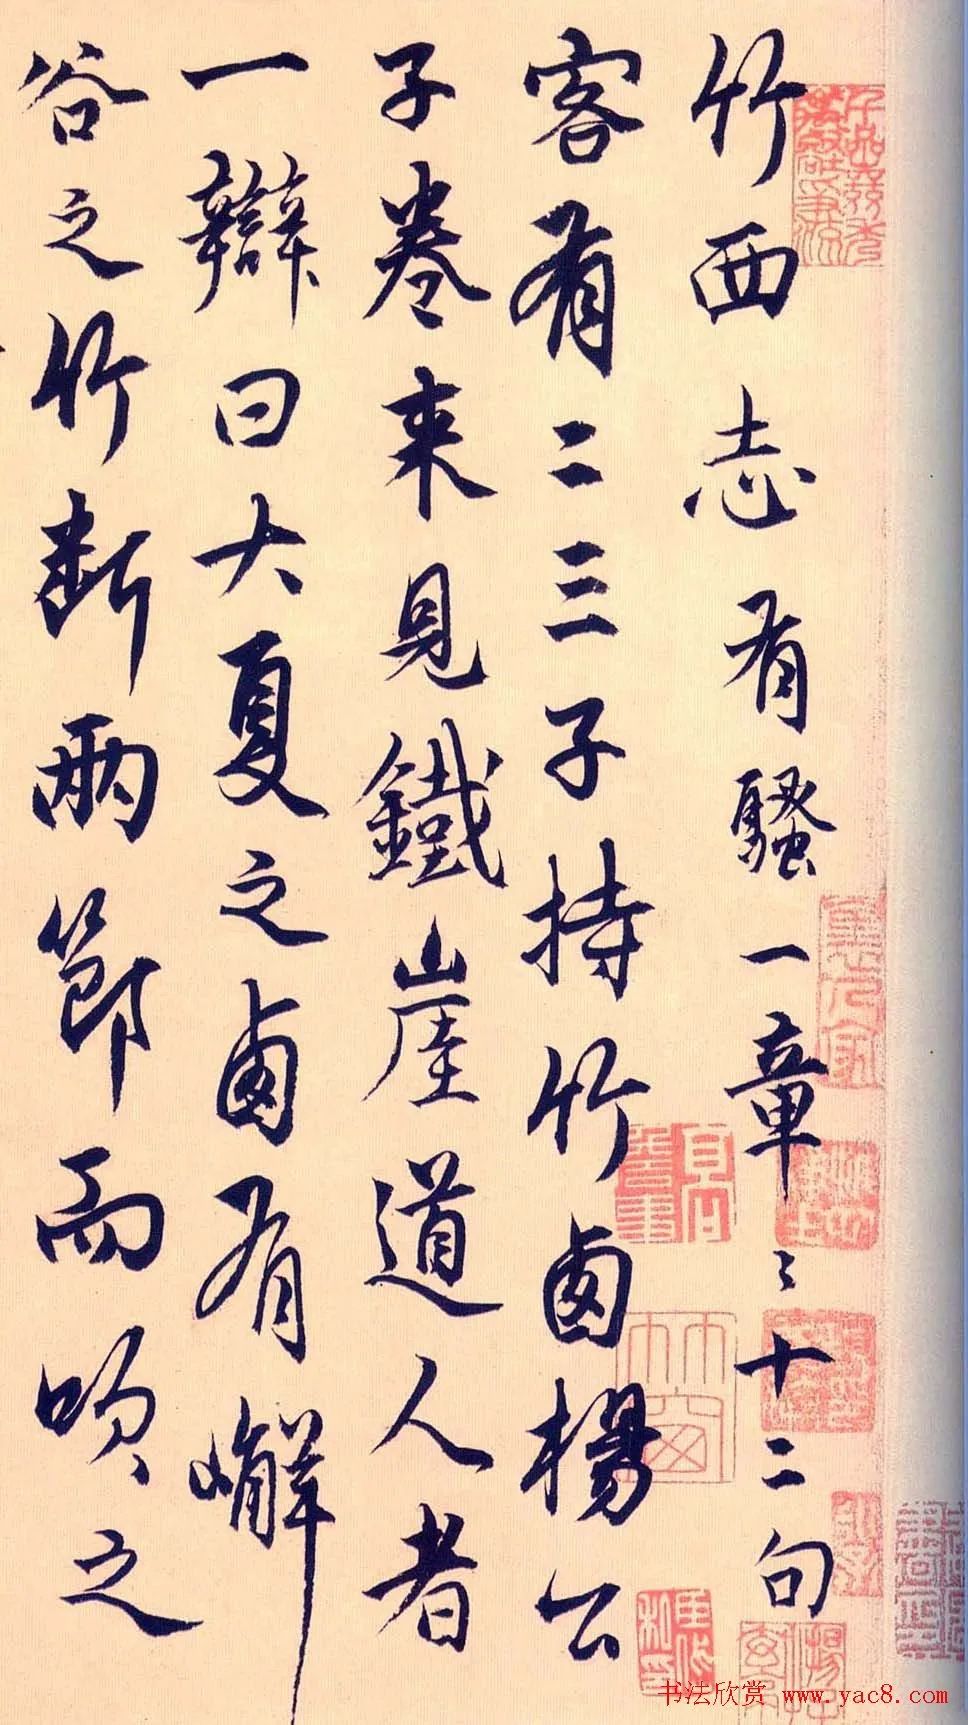 竹西志有騷一章〻十二句
客有二三子持竹卤楊公
子卷来見鐵崖道人者
一辯曰大夏之卤有嶰
谷之竹断兩節而吹之
书法欣赏 www.yac8.com